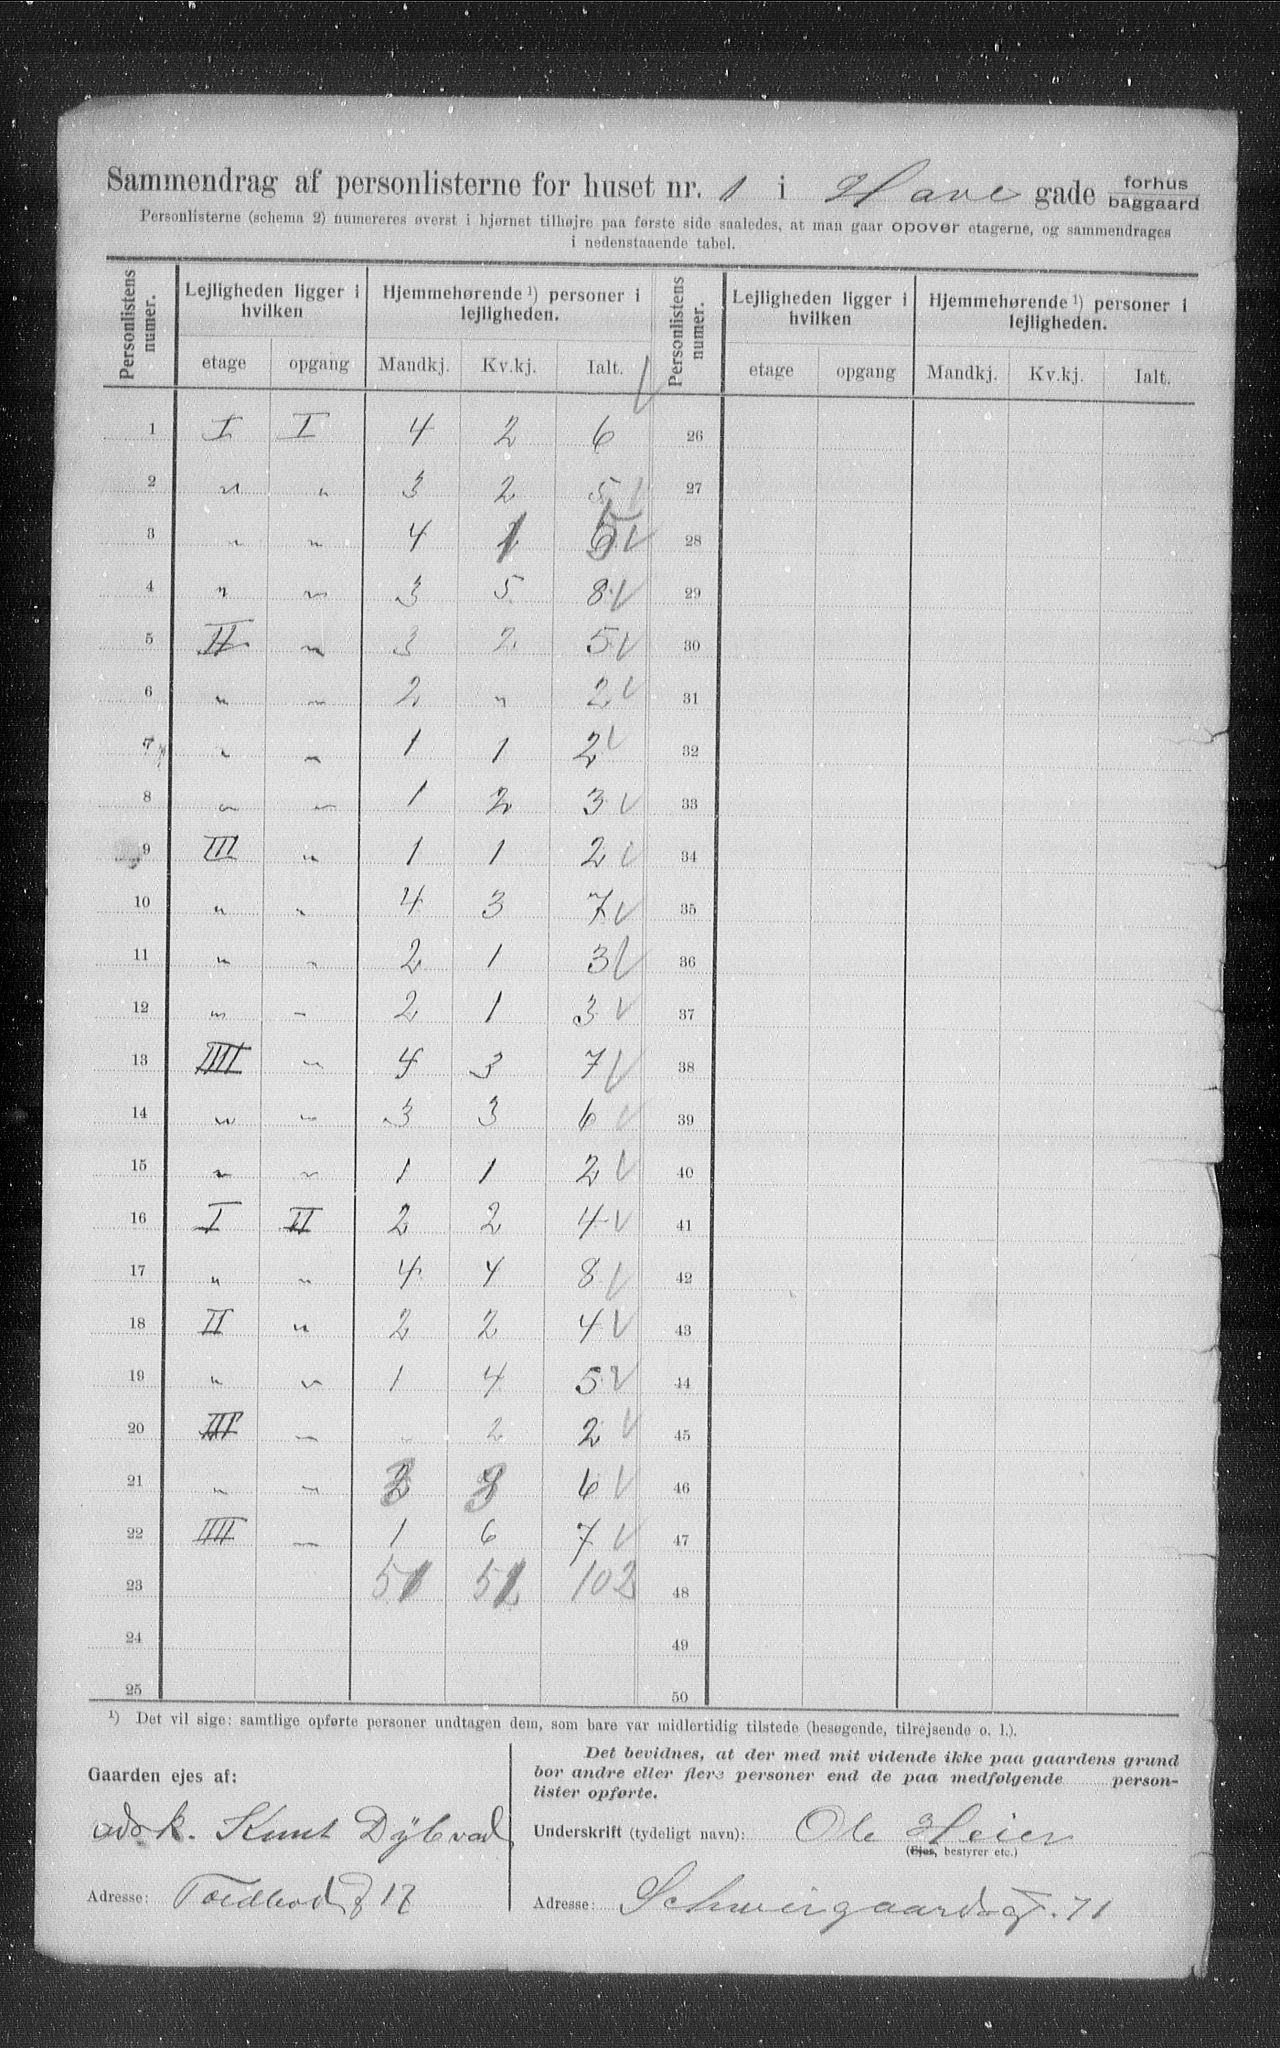 Sammendrag af personlisterne for huset nr. 1 i Have gade forhus baggaard
Personlisterne (schema 2) numereres øverst i hjørnet tilhøjre paa første side saaledes, at man gaar opover etagerne, og sammendrages
i nedenstaaende tabel.
Personlistens numer. Lejligheden ligger i hvilken Hjemmehørende ¹) personer i lejligheden. Personlistens numer. Lejligheden ligger i hvilken Hjemmehørende ¹) personer i lejligheden.
etage opgang Mandkj. Kv.kj. Ialt. etage opgang Mandkj. Kv.kj. Ialt.
1 I I 4 2 6 26
2 " " 3 2 5 27
3 " " 4 1 5 28
4 " " 3 5 8 29
5 II " 3 2 5 30
6 " " 2 " 2 31
7 " " 1 1 2 32
8 " " 1 2 3 33
9 III " 1 1 2 34
10 " " 4 3 7 35
11 " " 2 1 3 36
12 " " 2 1 3 37
13 IIII " 4 3 7 38
14 " " 3 3 6 39
15 " " 1 1 2 40
16 I II 2 2 4 41
17 " " 4 4 8 42
18 II " 2 2 4 43
19 " " 1 4 5 44
20 III " " 2 2 45
21 " " 3 3 6 46
22 IIII " 1 6 7 47
23 51 51 102 48
24 49
25 50
¹) Det vil sige: samtlige opførte personer undtagen dem, som bare var midlertidig tilstede (besøgende, tilrejsende o. l.).
Gaarden ejes af:
Knut Dybvad
Adresse: Toldbodg 17
Det bevidnes, at der med mit vidende ikke paa gaardens grund
bor andre eller flere personer end de paa medfølgende person-
lister opførte.
Underskrift (tydeligt navn): Ole Heier
(Ejer, bestyrer etc.)
Adresse: Schweigaardsgt. 71